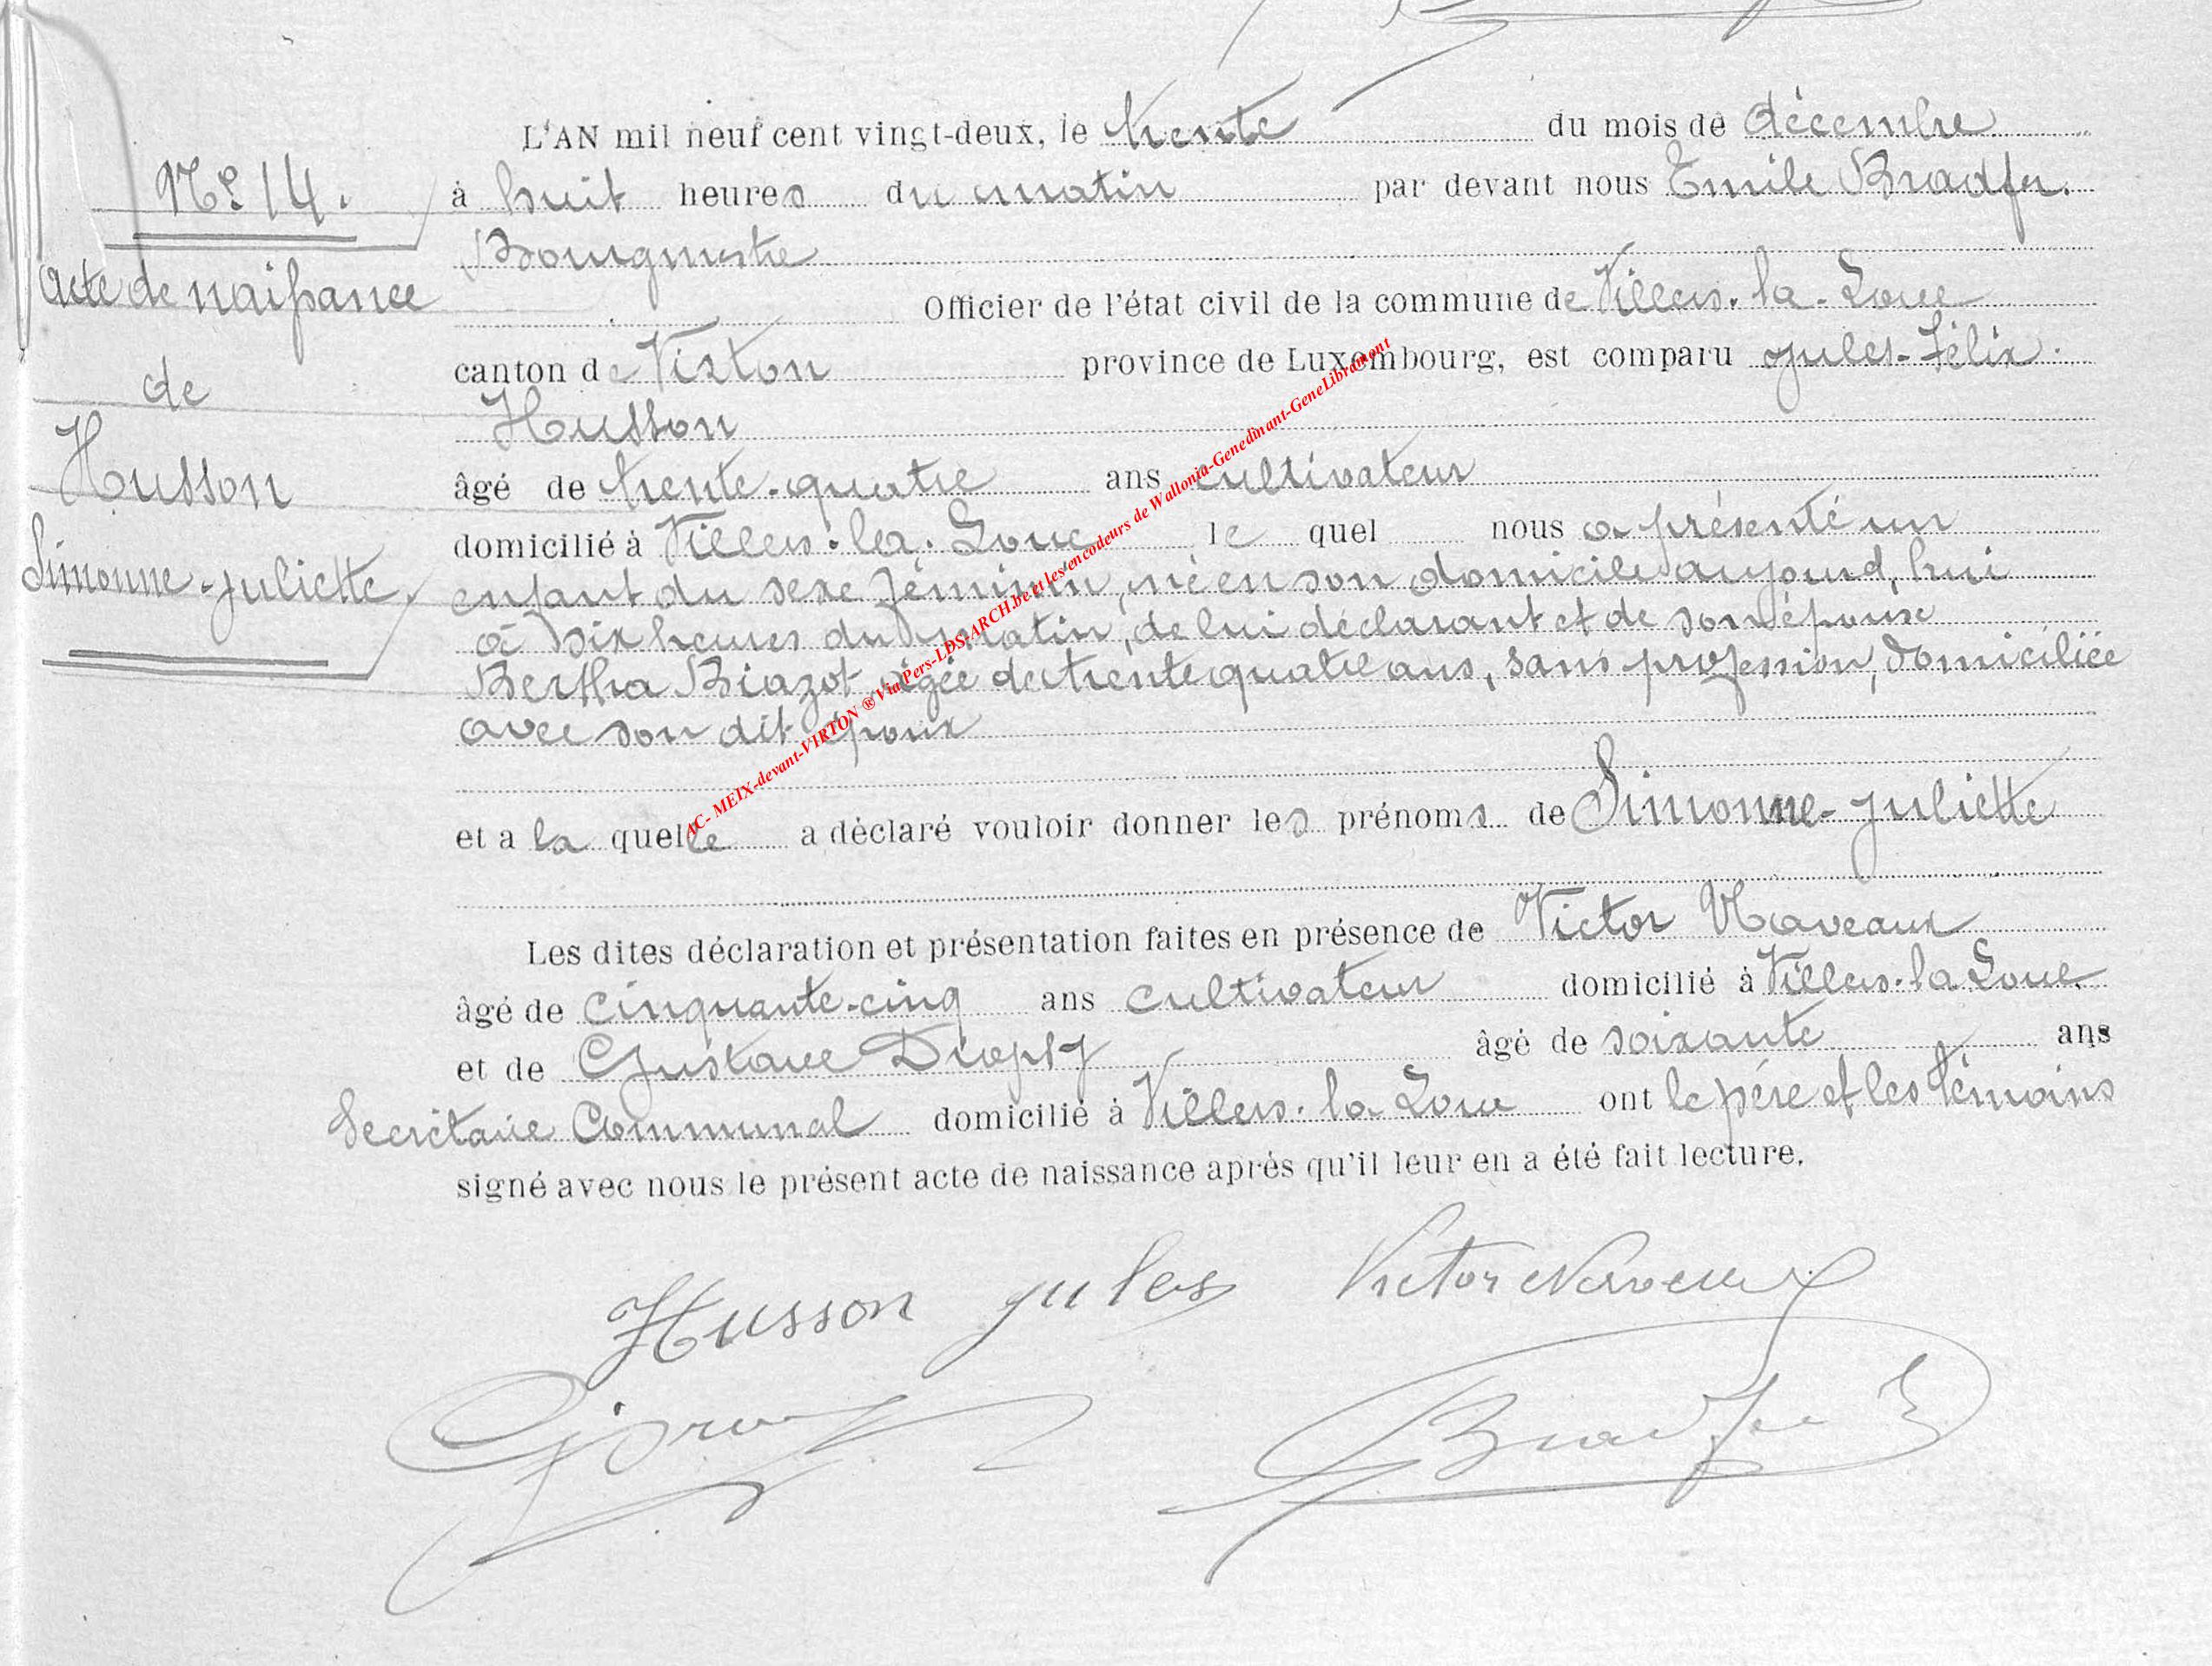 L'AN mil neuf cent vingt-deux, le trente du mois de décembre
à huit heures du matin par devant nous Emile Bradfer.
Bourgmestre
Officier de l'état civil de la commune de Villers-la-Loue
canton de Virton province de Luxembourg, est comparu Jules-Félix
Husson
âgé de trente-quatre ans cultivateur
domicilié à Villers-la-Loue le quel nous a présenté un
enfant du sexe féminin, né en son domicile aujourd'hui
à six heures du matin, de lui déclarant et de son épouse
Bertha Biazot âgée de trente quatre ans, sans profession, domiciliée
avec son dit époux
et a la quelle a déclaré vouloir donner les prénoms de Simonne-Juliette
Les dites déclaration et présentation faites en présence de Victor Naveaux
âgé de cinquante-cinq ans cultivateur domicilié à Villers-la Loue.
et de Gustave âgé de soixante ans
Secrétaire Communal domicilié à Villers-la Loue ont le père et les témoins
signé avec nous le présent acte de naissance après qu'il leur en a été fait lecture.
Nº 14.
Acte de naissance
de
Husson
Simonne-Juliette.
Husson jules Victor Naveaux
Bradfer E
AC- MEIX-devant-VIRTON ® Via Pers-LDS-ARCH.be et les encodeurs de Wallonia-Genedinant-GeneLibramont